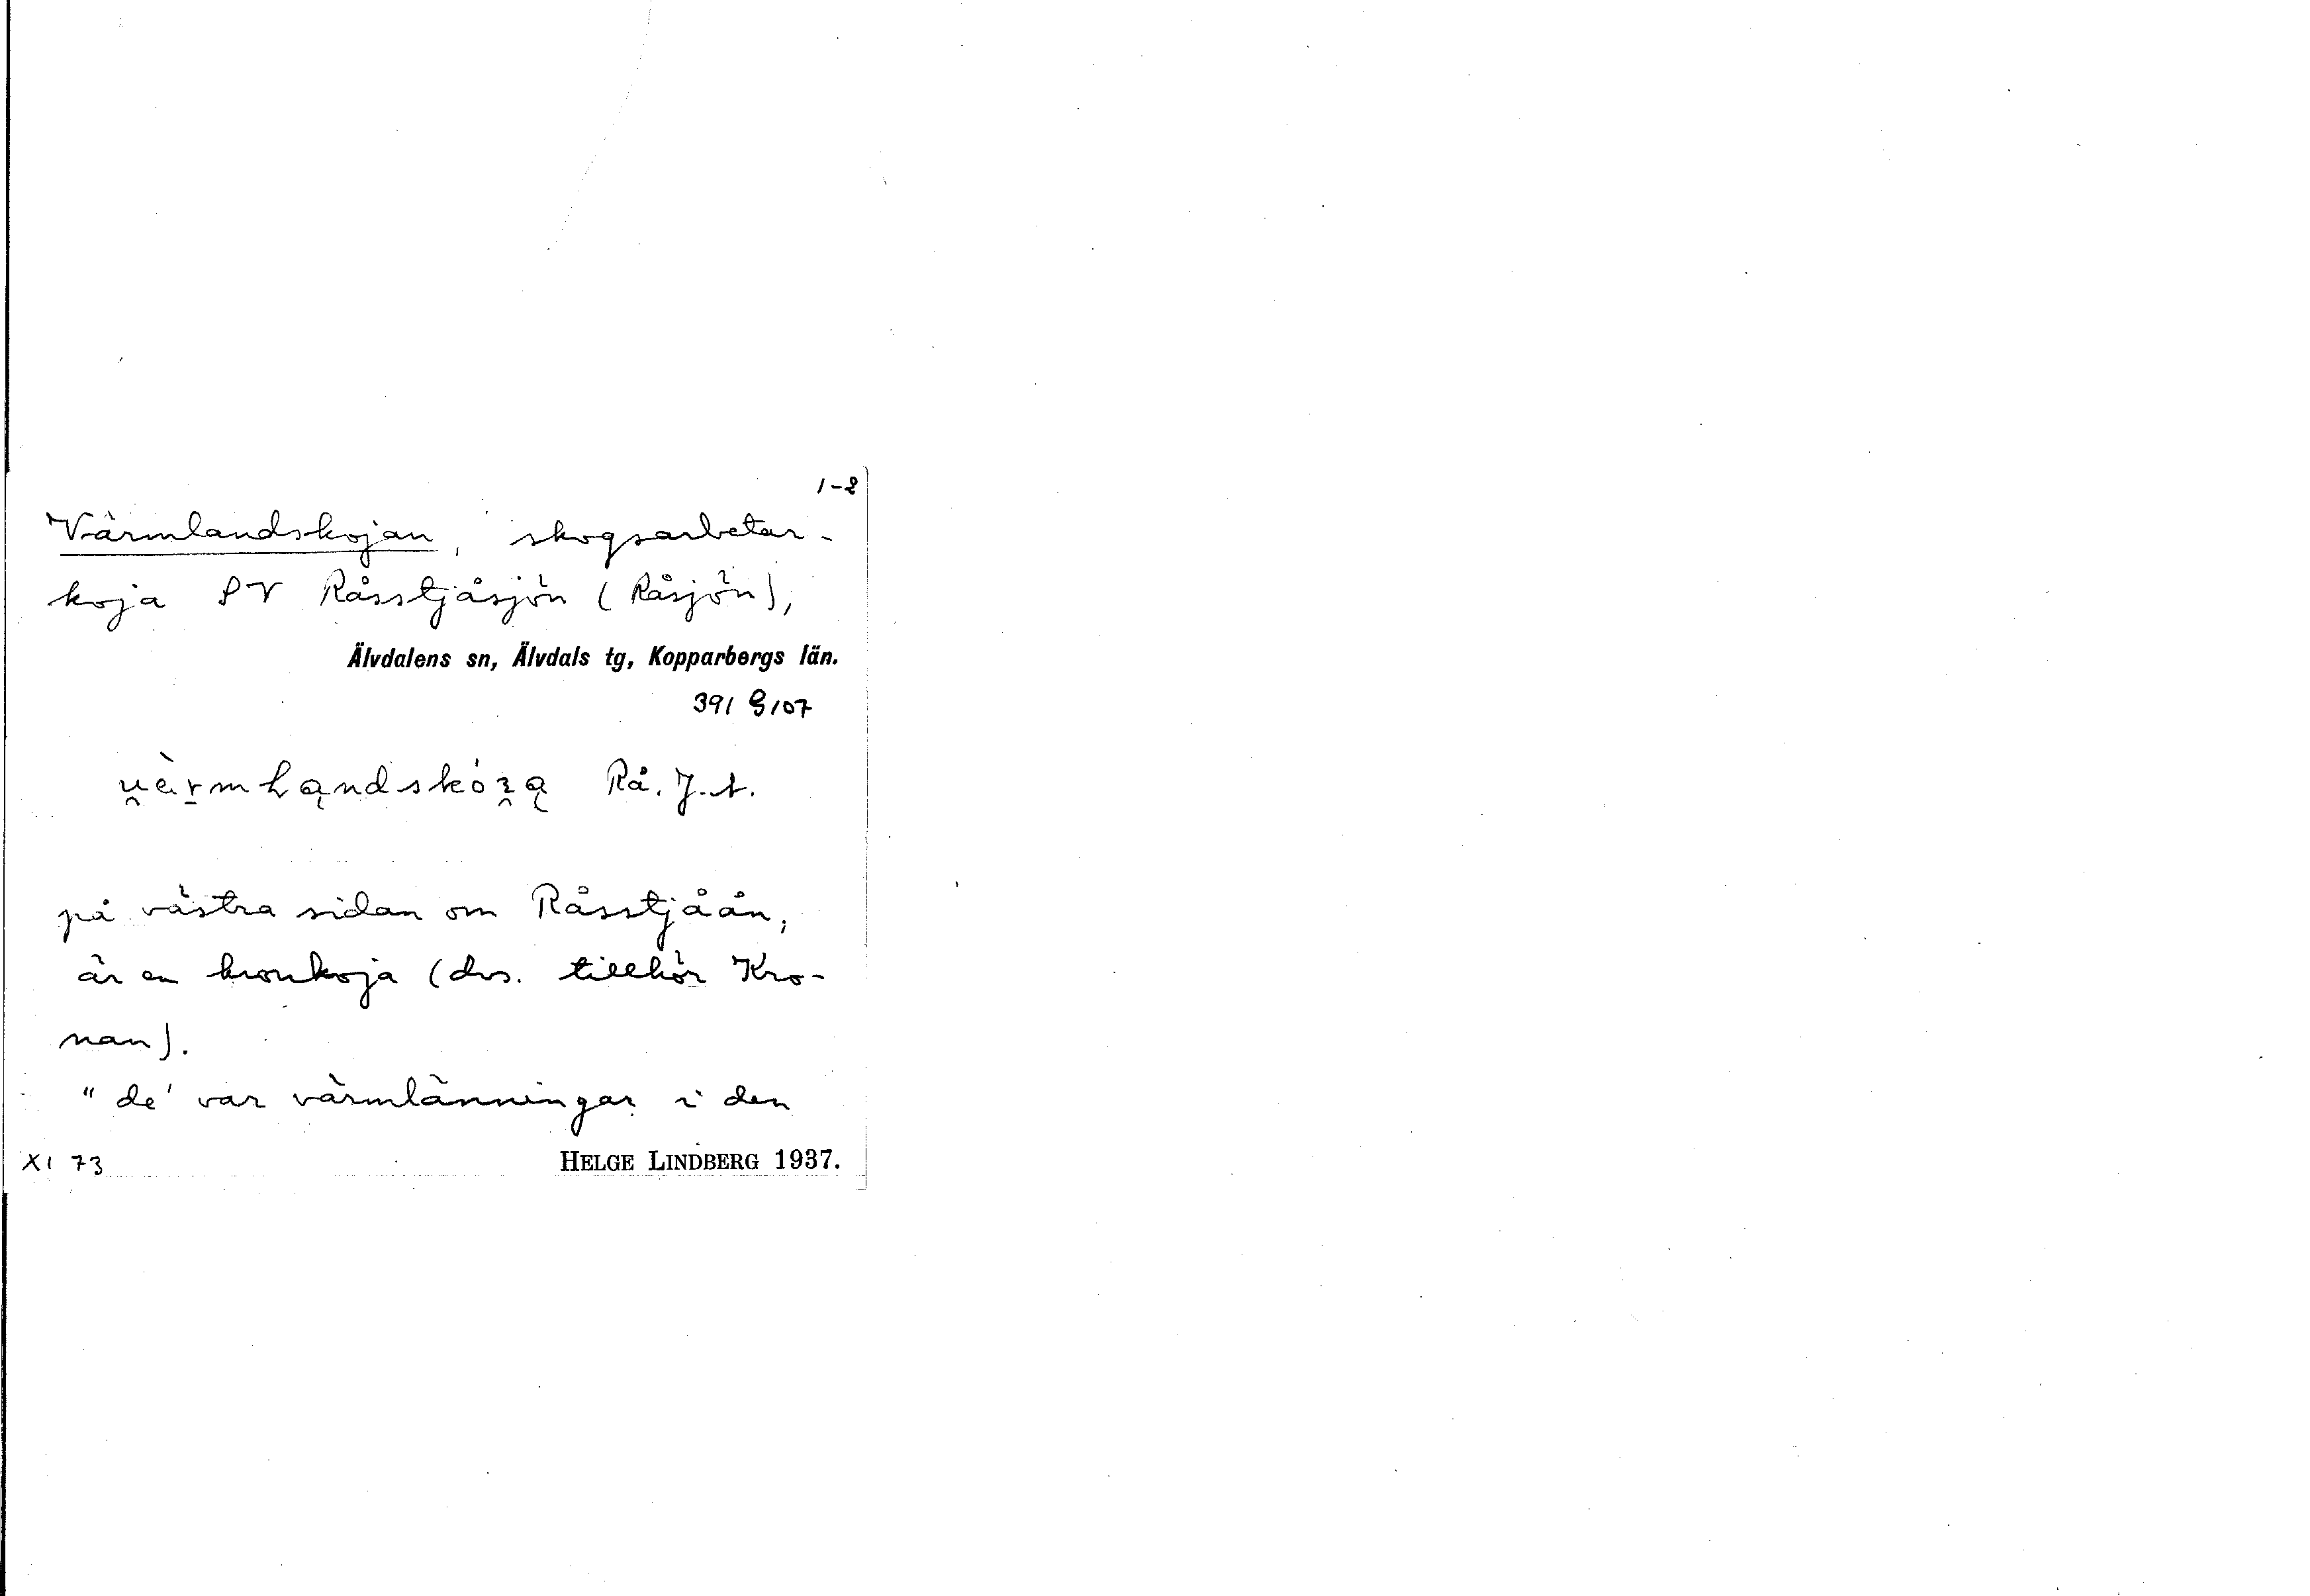 1-2
Värmlandskojan, skogsarbetar-
koja SV Råsstjåsjön (Råsjön),
Älvdalens sn, Älvdals tg, Kopparbergs län.
391 107
Rå. J.A.
på västra sidan om Råsstjåån,
är en kronkoja (dvs. tillhör Kro-
nan).
"de' var värmlänningar i den
XI 73 HELGE LINDBERG 1937.